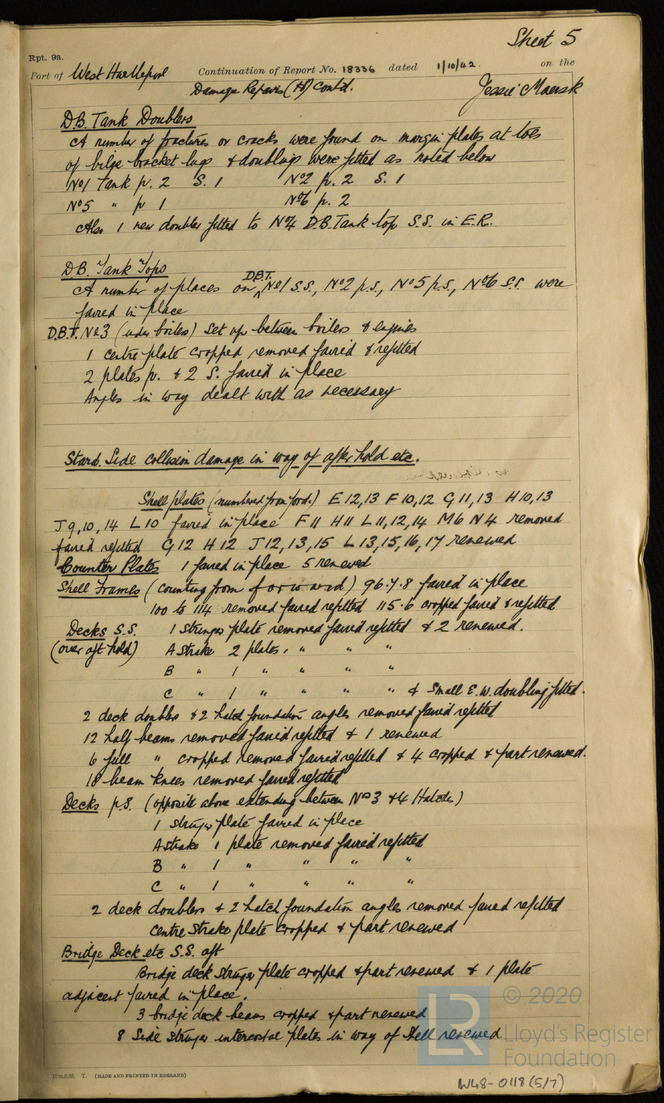 Sheet 5
Rpt. 9a.
Port of West Hartlepool Continuation of Report No. 18336 dated 1/10/42. on the
Damage Repairs (H) Contd. Jessie Maersk
D.B. Tank Doublers
A number of fractures or cracks were found on margin plates at toes
of bilge bracket lugs & doublings were fitted as noted below
No1 Tank p. 2 S. 1 No2 p. 2 S. 1
No5 " p 1 No6 p. 2
Also 1 new doubler fitted to No4 D.B. Tank top S.S. in E.R.
D.B. Tank Tops
A number of places on D.B.T. No1 S.S., No2 p.s., No5 p.s., No6 S.S. were
faired in place
D.B.T. No3 (under boilers) Set up between boilers & engines
1 centre plate cropped removed faired & refitted
2 plates p. & 2 S. faired in place
Angles in way dealt with as necessary
Starb. Side collision damage in way of after hold etc.
Shell plates (numbered from ford.) E 12,13 F 10,12 G 11,13 H 10,13
J 9,10,14 L 10 faired in place F 11 H 11 L 11,12,14 M 6 N 4 removed
faired refitted G, 12 H 12 J 12,13,15 L 13,15,16,17 renewed
Counter Plates 1 faired in place 5 renewed
Shell Frames (counting from forward) 96.7.8 faired in place
100 to 114 removed faired refitted 115.6 cropped faired & refitted
Decks S.S. 1 Stringer plate removed faired refitted & 2 renewed.
(over aft hold) A Strake 2 plates " " " "
B " 1 " " " "
C " 1 " " " " & Small E.W. doubling fitted.
2 deck doublers & 2 hatch foundation angles removed faired refitted
12 half beams removed faired refitted & 1 renewed
6 full " cropped removed faired refitted & 4 cropped & part renewed.
18 beam knees removed faired refitted
Decks p.s. (opposite above extending between No3 & 4 Hatches)
1 stringer plate faired in place
A strake 1 plate removed faired refitted
B " 1 " " " "
C " 1 " " " "
2 deck doublers & 2 hatch foundation angles removed faired refitted
Centre Strake plate cropped & part renewed
Bridge Deck etc S.S. aft
Bridge deck stringer plate cropped & part renewed & 1 plate
adjacent faired in place.
3 bridge deck beams cropped & part renewed
8 Side stringer intercostal plates in way of shell renewed
© 2020
LR
Lloyd's Register
Foundation
T. (MADE AND PRINTED IN ENGLAND)
W48-0118 (5/7)